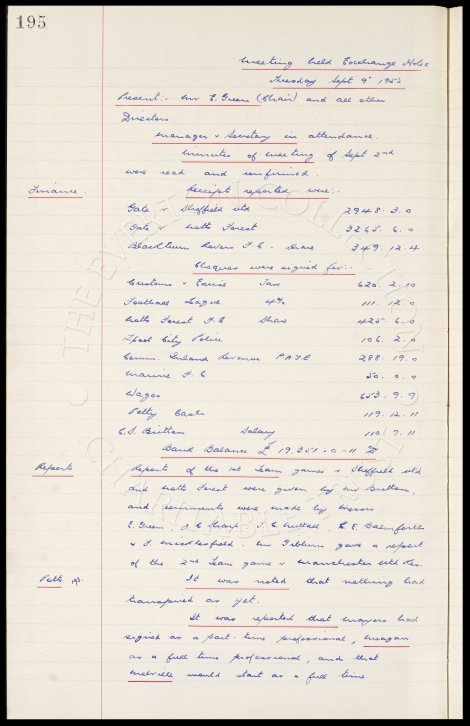 195
Meeting held Exchange Hotel
Tuesday Sept 9th 1952
Present:- Mr E. Green (Chair) and all other
Directors
Manager & Secretary in attendance.
Minutes of meeting of Sept 2nd
were read and confirmed.
Finance. Receipts reported were:-
Gate v Sheffield Utd 2948. 3. 0
Gate v Notts Forest 3265. 6. 0
Blackburn Rovers F.C. Share 349. 12. 4
Cheques were signed for:-
Customs & Excise Tax 626. 2. 10
Football League 4% 111. 12. 0
Notts Forest F.C Share 425. 6. 0
Lpool City Police 106. 2. 0
Comm. Inland Revenue P.A.Y.E 288. 19. 0
Marine F.C 50. 0. 0
Wages 653. 9. 9
Petty Cash 119. 12. 11
C.S. Britton Salary 110. 9. 11
Bank Balance £ 19,351-0-11
Reports Reports of the 1st Team games v Sheffield Utd
and Notts Forest were given by Mr Britton,
and comments were made by Messrs
E. Green, J.C. Sharp, T.C. Nuttall, C.E. Balmforth
& F. Micklesfield. Mr Gibbins gave a report
of the 2nd Team game v Manchester Utd Res.
Potts It was noted that nothing had
transpired as yet.
It was reported that Mayers had
signed as a part-time professional, Meagan
as a full time professional, and that
Melville would start as a full time
THE EVERTON COLLECTION
CHARITABLE TRUST